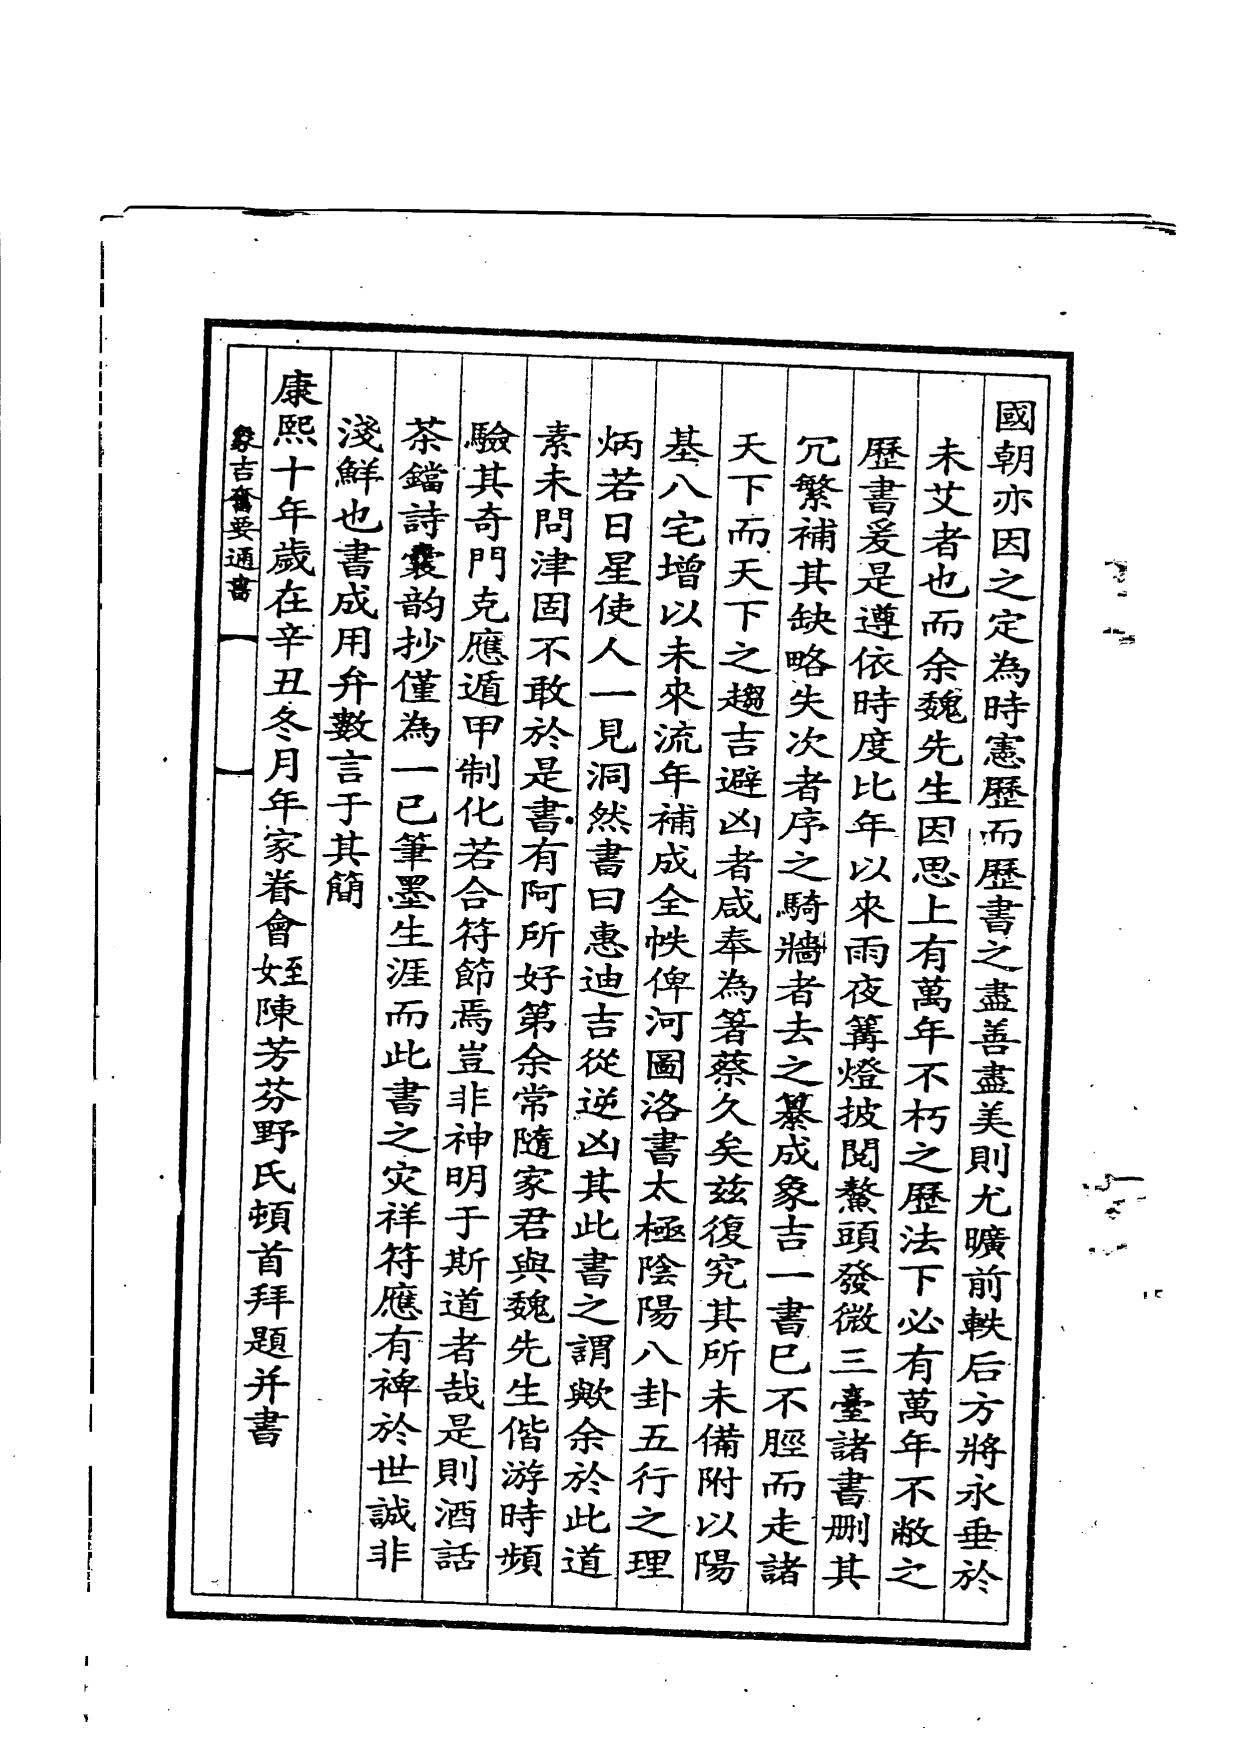 國朝亦因之定為時憲歷而歷書之盡善盡美則尤曠前軼后方將永垂於
未艾者也而余魏先生因思上有萬年不朽之歷法下必有萬年不敝之
歷書爰是遵依時度比年以來雨夜篝燈披閱鰲頭發微三臺諸書刪其
冗繁補其缺略失次者序之騎牆者去之纂成象吉一書已不脛而走諸
天下而天下之趨吉避凶者咸奉為箸蔡久矣茲復究其所未備附以陽
基八宅增以未來流年補成全帙俾河圖洛書太極陰陽八卦五行之理
炳若日星使人一見洞然書曰惠迪吉從逆凶其此書之謂歟余於此道
素未問津固不敢於是書有阿所好第余常隨家君與魏先生偕游時頻
驗其奇門克應遁甲制化若合符節焉豈非神明于斯道者哉是則酒話
茶鐺詩囊韵抄僅為一已筆墨生涯而此書之灾祥符應有裨於世誠非
淺鮮也書成用弁數言于其簡
康熙十年歲在辛丑冬月年家眷會姪陳芳芬野氏頓首拜題并書
象吉奮要通書